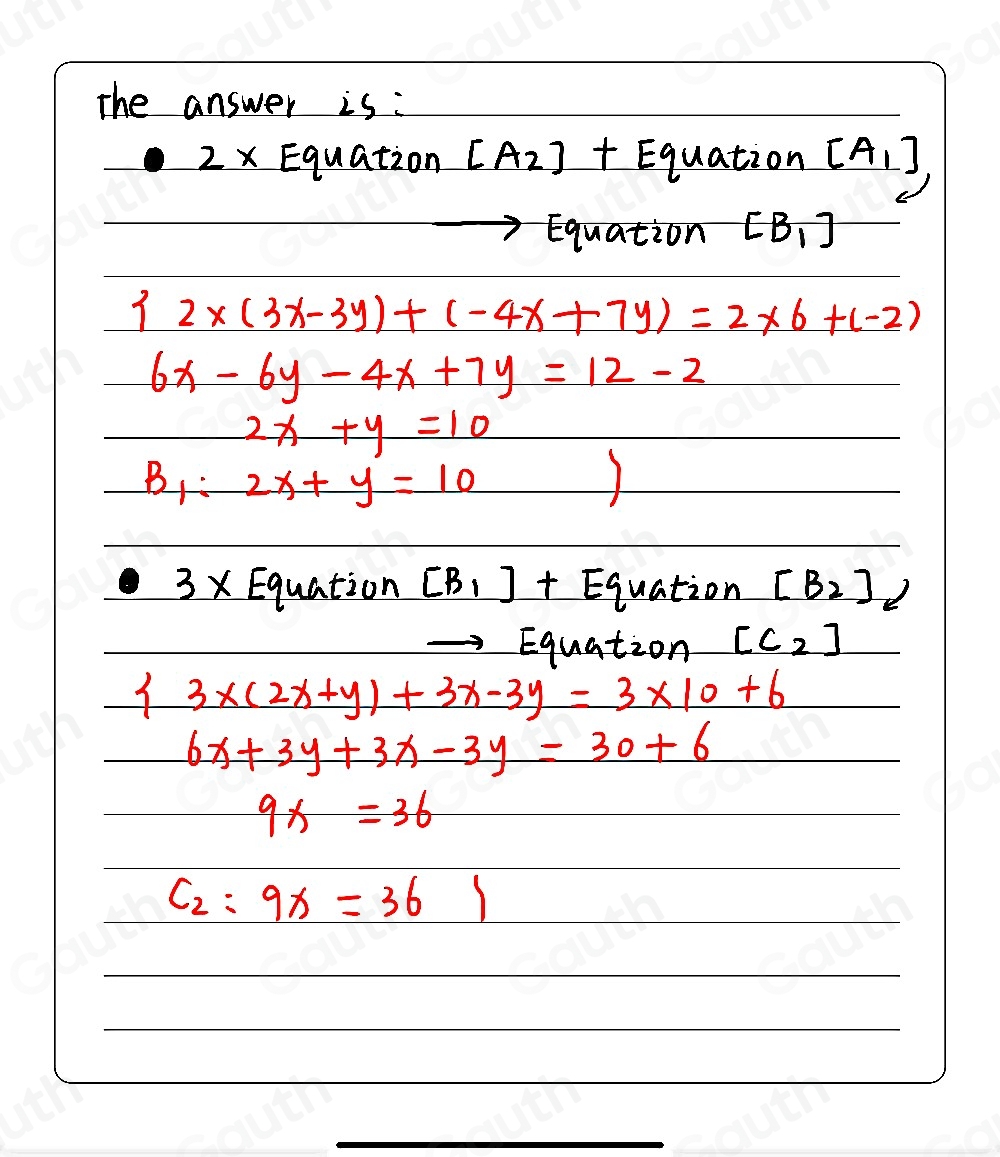 The answer is:
● 2 × Equation [A2] + Equation [A1]
→ Equation [B1]
{ 2×(3x-3y)+(-4x+7y)=2×6+(-2)
6x-6y-4x+7y=12-2
2x+y=10
B1: 2x+y=10 }
● 3 × Equation [B1] + Equation [B2]
→ Equation [C2]
{ 3×(2x+y)+3x-3y=3×10+6
6x+3y+3x-3y=30+6
9x=36
C2: 9x=36 }